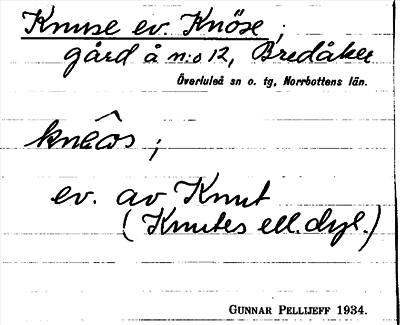 Knuse ev. Knöse;
gård å n:o 12, Bredåker
Överluleå sn o. tg, Norrbottens län.
;
ev. av Knut
(Knutes ell. dyl.)
GUNNAR PELLIJEFF 1934.